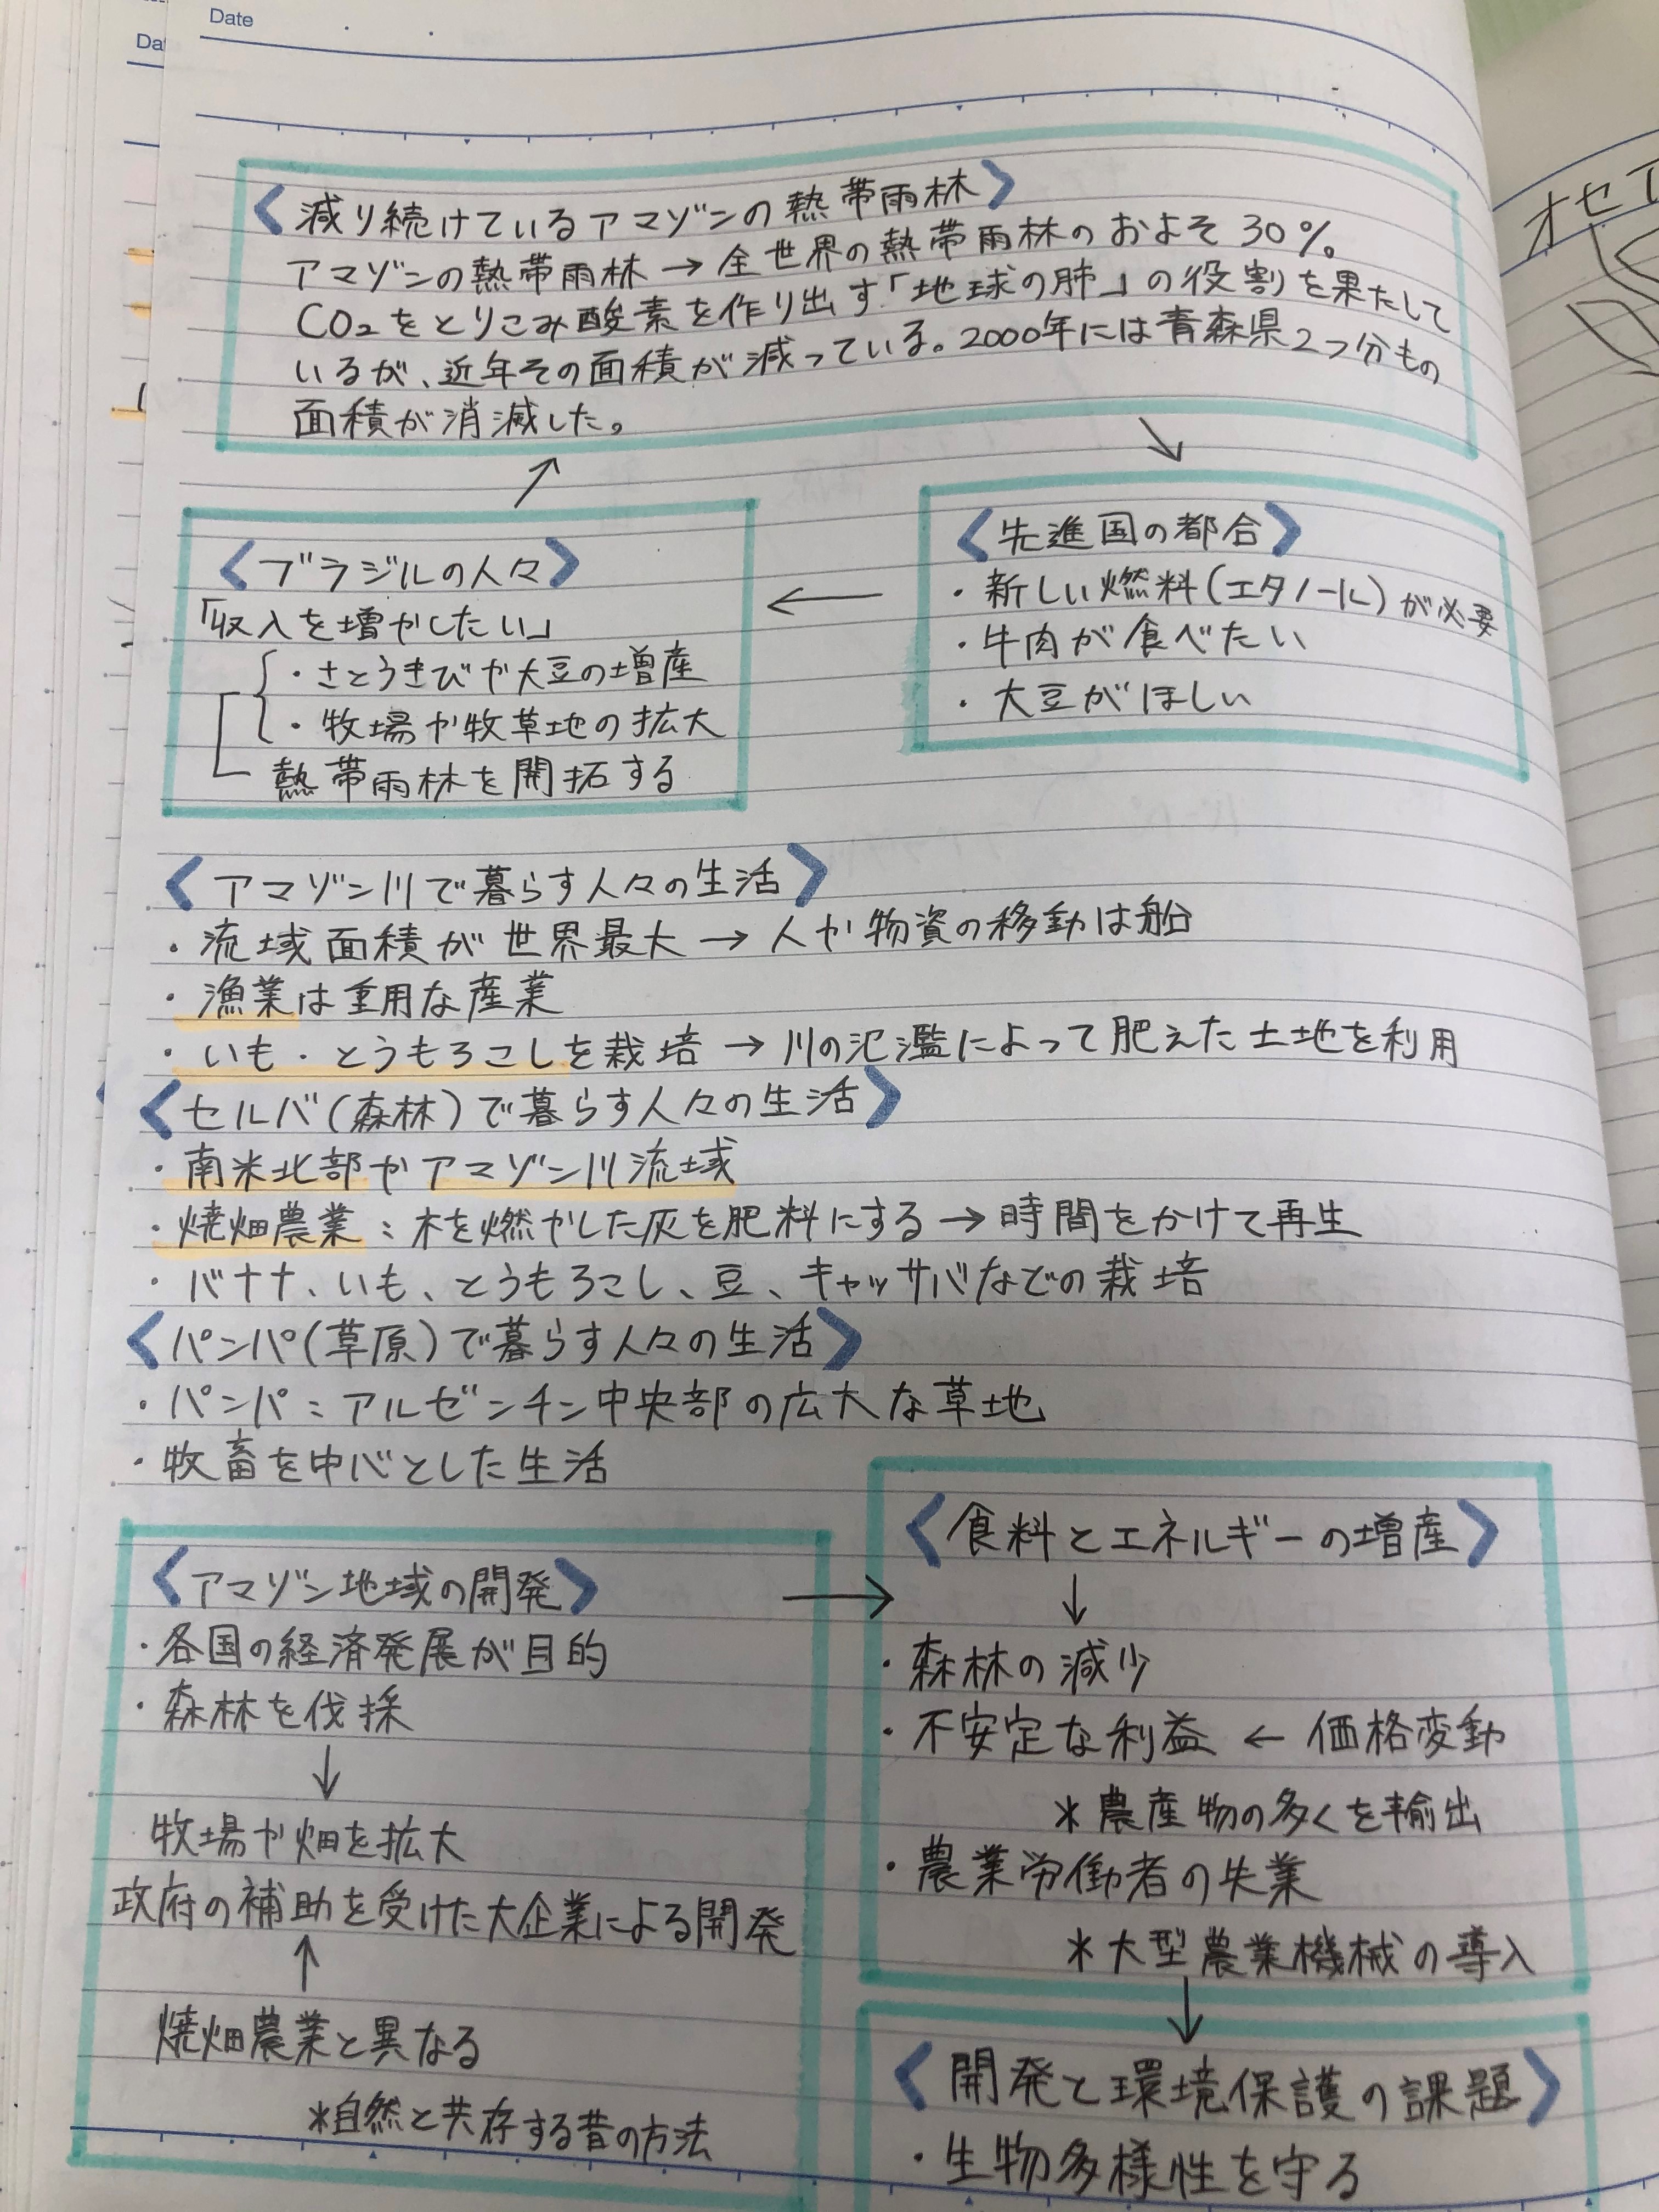 Date
〈減り続けているアマゾンの熱帯雨林〉
アマゾンの熱帯雨林→全世界の熱帯雨林のおよそ30%。
CO₂をとりこみ酸素を作り出す「地球の肺」の役割を果たして
いるが、近年その面積が減っている。2000年には青森県2つ分もの
面積が消滅した。
〈先進国の都合〉
・新しい燃料(エタノール)が必要
・牛肉が食べたい
・大豆がほしい
〈ブラジルの人々〉
「収入を増やしたい」
・さとうきびや大豆の増産
・牧場や牧草地の拡大
熱帯雨林を開拓する
〈アマゾン川で暮らす人々の生活〉
・流域面積が世界最大→人や物資の移動は船
・漁業は重用な産業
・いも・とうもろこしを栽培→川の氾濫によって肥えた土地を利用
〈セルバ(森林)で暮らす人々の生活〉
・南米北部やアマゾン川流域
・焼畑農業:木を燃やした灰を肥料にする→時間をかけて再生
・バナナ、いも、とうもろこし、豆、キャッサバなどの栽培
〈パンパ(草原)で暮らす人々の生活〉
・パンパ:アルゼンチン中央部の広大な草地
・牧畜を中心とした生活
〈アマゾン地域の開発〉
・各国の経済発展が目的
・森林を伐採
↓
牧場や畑を拡大
政府の補助を受けた大企業による開発
↑
焼畑農業と異なる
*自然と共存する昔の方法
→
〈食料とエネルギーの増産〉
↓
・森林の減少
・不安定な利益←価格変動
*農産物の多くを輸出
・農業労働者の失業
*大型農業機械の導入
↓
〈開発と環境保護の課題〉
・生物多様性を守る